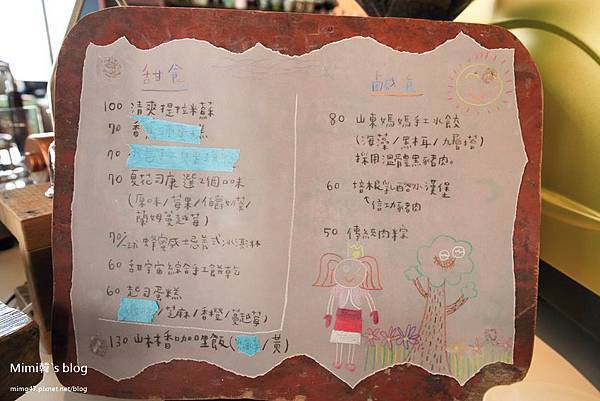 甜食
100 清爽提拉米蘇
70 香
糕
70
70 夏花司康 選2個口味
(原味/莓果/伯爵奶茶/
蘭姆蔓越莓)
70/ 蜂蜜威士忌義式冰淇淋
60 甜宇宙綜合手工餅乾
60 起司蛋糕
/芝麻/香橙/蔓越莓
130 山林香咖哩飯( /黃)
鹹食
80 山東媽媽手工水餃
(海藻/黑木耳/九層塔)
採用溫體黑豬肉。
60 培根乳酪小漢堡
信功豬肉
50 傳統肉粽
Mimi韓's blog
mimg47.pixnet.net/blog